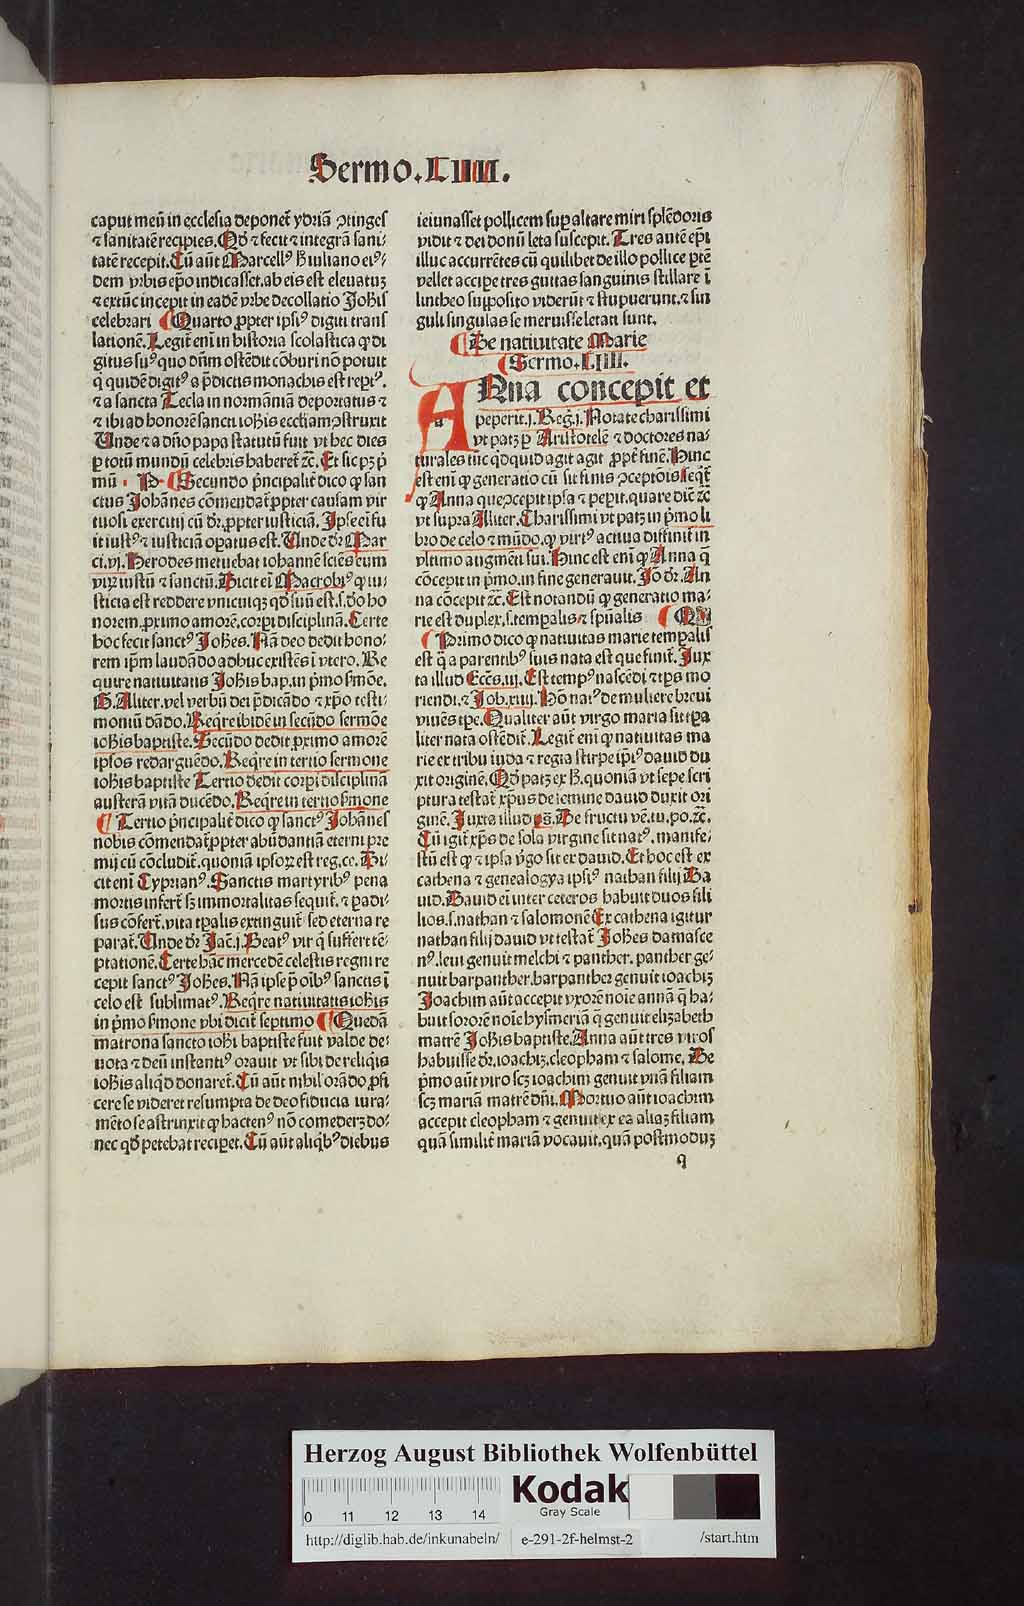 Sermo.LIIII.
caput meū in ecclesia deponet̄ ydriā ꝯtinges
⁊ sanitatē recipies. Qd̄ ⁊ fecit ⁊ integrā sani⸗
tatē recepit. Cū aūt Marcellꝰ Iuliano eiꝰ⸗
dem vrbis ep̄o indicasset. ab eis est eleuatuꝫ
⁊ extūc incepit in eadē vrbe decollatio Joh̄is
celebrari Quarto ꝓpter ipsiꝰ digiti trans
lationē. Legit̄ enī in historia scolastica ꝙ di
gitus suꝰ quo dn̄m ostēdit cōburi nō potuit
q̄ quidē digitꝰ a p̄dictis monachis est rep̄tꝰ.
⁊ a sancta Tecla in normāniā deportatus ⁊
⁊ ibi ad honorē sancti ioh̄is eccl̄iam ꝯstruxit
Unde ⁊ a dn̄o papa statutū fuit vt hec dies
ꝑ totū mundū celebris haberet̄ ⁊c̄. Et sic pꝫ p̄
mū Secundo p̄ncipalit̄ dico ꝙ san
ctus Johānes cōmendat̄ ꝓpter causam vir
tuosi exercitij cū dr̄. ꝓpter iusticiā. Ipse enī fu
it iustꝰ ⁊ iusticiā oꝑatus est. Unde dr̄ Mar
ci. vj. Herodes metuebat iohannē sciēs eum
viꝝ iustū ⁊ sanctū. Dicit eī Macrobiꝰ ꝙ iu⸗
sticia est reddere vnicuiqꝫ qd̄ suū est. s. do ho
norem. ꝓximo amorē. corꝑi disciplinā. Certe
hoc fecit sanctꝰ Johēs. Nā deo dedit hono⸗
rem ip̄m laudādo adhuc existēs ī vtero. Re
quire natiuitatis Joh̄is bap. in p̄mo s̄mōe.
Aliter. vel verbū dei p̄dicādo ⁊ xp̄o testi⸗
moniū dādo. Reqͥre ibidē in secūdo sermōe
ioh̄is baptiste. Secūdo dedit ꝓximo amorē
ipsos redarguēdo. Reqͥre in tertio sermone
ioh̄is baptiste Tertio dedit corꝑi disciplinā
austerā vitā ducēdo. Reqͥre in tertio s̄mone
Tertio p̄ncipalit̄ dico ꝙ sanctꝰ Johānes
nobis cōmendat̄ ꝓpter abūdantiā eterni pre
mij cū cōcludit̄. quoniā ipsoꝝ est reg. ce. Di⸗
cit enī Cyprianꝰ. Sanctis martyribꝰ pena
mortis infert̄ sꝫ immortalitas sequit̄. ⁊ padi⸗
sus cōfert̄. vita tꝑalis extinguit̄ sed eterna re
parat̄. Unde dr̄ Jac̄. j. Beatꝰ vir q̄ suffert tē⸗
ptationē. Certe hāc mercedē celestis regni re
cepit sanctꝰ Joh̄es. Nā ipse p̄ oīb̄ꝰ sanctis ī
celo est sublimatꝰ. Reqͥre natiuitatis ioh̄is
in p̄mo s̄mone vbi dicit̄ septimo Quedā
matrona sancto ioh̄i baptiste fuit valde de⸗
uota ⁊ deū instantiꝰ orauit vt sibi de reliqͥis
ioh̄is aliqͥd donaret̄. Cū aūt nihil orādo ꝓfi
cere se videret resumpta de deo fiducia iura⸗
mēto se astrinxit ꝙ hactenꝰ nō comederꝫ do⸗
nec qd̄ petebat recipet. Cū aūt aliqͥbꝰ diebus
ieiunasset pollicem suꝑ altare miri splēdoris
vidit ⁊ dei donū leta suscepit. Tres autē ep̄i
illuc accurrētes cū quilibet de illo pollice ꝑtē
vellet accipe tres guttas sanguinis stillare ī
lintheo supposito viderūt ⁊ stupuerunt. ⁊ sin
guli singulas se meruisse letati sunt.
De natiuitate Marie
Sermo. LIIII.
ANna concepit et
peperit. j. Reḡ. j. Notate charissimi
vt patꝫ ꝑ Aristotelē ⁊ doctores na⸗
turales tūc qd̄quid agit agit ꝓpt̄ finē. Hinc
est enī ꝙ generatio cū sit finis ꝯceptōis seqͥt̄
ꝙ Anna que ꝯcepit ipsa ⁊ peꝑit. quare dic̄ ⁊c̄
vt supra Aliter. Charissimi vt patꝫ in p̄mo li
bro de celo ⁊ mūdo. ꝙ virtꝰ actiua diffinit̄ in
vltimo augmēti sui. Hinc est enī ꝙ Anna q̄
cōcepit in p̄mo. in fine generauit. Jō dr̄. An
na cōcepit ⁊c̄. Est notandū ꝙ generatio ma⸗
rie est duplex. s. temꝑalis ⁊ sp̄ualis
Primo dico ꝙ natiuitas marie temꝑalis
est q̄ a parentibꝰ suis nata est que finit̄. Jux
ta illud Eccēs. iij. Est tempꝰ nascēdi ⁊ tp̄s mo
riendi. ⁊ Job. xiiij. Hō natꝰ de muliere breui
viuēs tp̄e. Qualiter aūt virgo maria sit tꝑa
liter nata ostēdit̄. Legit̄ enī ꝙ natiuitas ma
rie ex tribu iuda ⁊ regia stirpe ip̄iꝰ dauid du
xit originē. Qd̄ patꝫ ex h̄. quoniā vt sepe scri
ptura testat̄ xp̄us de semine dauid duxit ori
ginē. Juxta illud ps̄. De fructu vē. tu. po. ⁊c̄.
Cū igit̄ xp̄s de sola virgine sit natꝰ. manife⸗
stū est ꝙ ⁊ ipsa v̄go sit ex dauid. Et hoc est ex
cathena ⁊ genealogya ipsiꝰ nathan filij Da
uid. Dauid eī inter ceteros habuit duos fili
lios. s. nathan ⁊ salomonē Ex cathena igitur
nathan filij dauid vt testat̄ Joh̄es damasce
nꝰ. leui genuit melchi ⁊ panther. panther ge⸗
nuit barpanther. barpanther genuit ioachiꝫ
Joachim aūt accepit vxorē noīe annā q̄ ha⸗
buit sororē noīe hysmeriā q̄ genuit elizabeth
matrē Joh̄is baptiste. Anna aūt tres viros
habuisse dr̄. ioachiꝫ. cleopham ⁊ salome. De
p̄mo aūt viro scꝫ ioachim genuit vnā filiam
scꝫ mariā matrē dn̄i. Mortuo aūt ioachim
accepit cleopham ⁊ genuit ex ea aliaꝫ filiam
quā similit̄ mariā vocauit. quā postmoduꝫ
q
Herzog August Bibliothek Wolfenbüttel
0 11 12 13 14
Kodak
Gray Scale
http://diglib.hab.de/inkunabeln/ e-291-2f-helmst-2 /start.htm